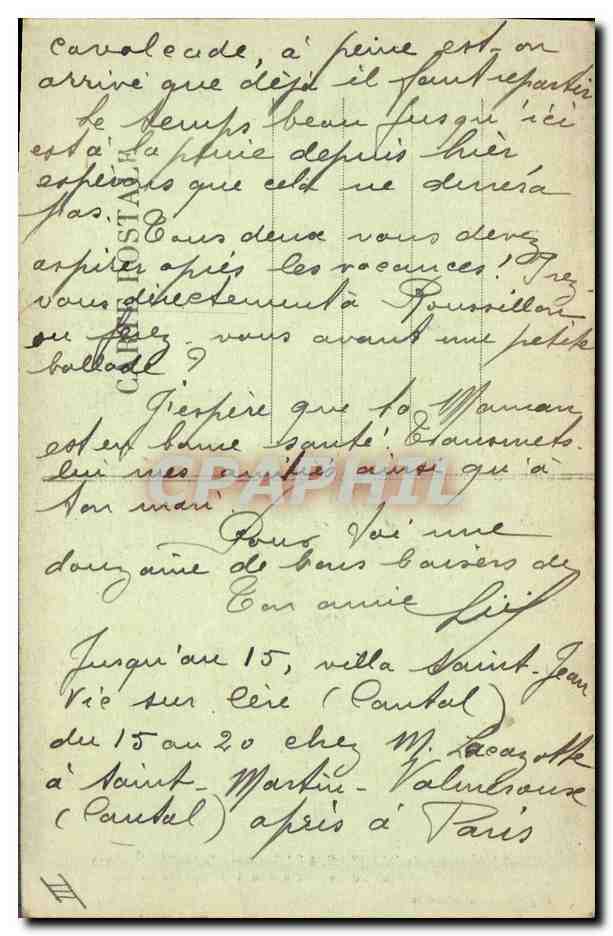 cavalcade, à peine est-on
arrivé que déjà il faut repartir
Le temps beau jusqu'ici
est à la pluie depuis hier,
espérons que cela ne durera
pas.
Tous deux vous devez
aspirer après les vacances! Irez-
vous directement à Roussillon
ou ferez-vous avant une petite
ballade?
J'espère que ta Maman
est en bonne santé! Transmets-
lui mes amitiés ainsi qu'à
ton mari.
Pour Toi une
douzaine de bons baisers de
Ton amie
Jusqu'au 15, villa Saint-Jean
Vic sur Cère (Cantal)
du 15 au 20 chez M. Lacazotte
à Saint-Martin-Valmeroux
(Cantal) après à Paris
III
CARTE POSTALE
CPAPHIL